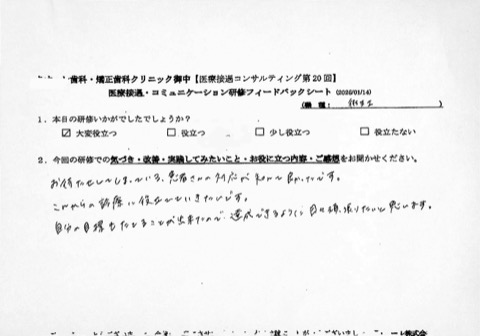 歯科・矯正歯科クリニック御中【医療接遇コンサルティング第20回】
医療接遇・コミュニケーション研修フィードバックシート (2026/01/14)
(職種: 衛生士 )
1. 本日の研修いかがでしたでしょうか?
☑ 大変役立つ □ 役立つ □ 少し役立つ □ 役立たない
2. 今回の研修での気づき・改善・実践してみたいこと・お役に立つ内容・ご感想をお聞かせください。
お待たせしてしまっている、患者さんの対応が知れて良かったです。
これからの診療に役立てていきたいです。
自分の目標もたてることが出来たので、達成できるように日々頑張りたいと思います。